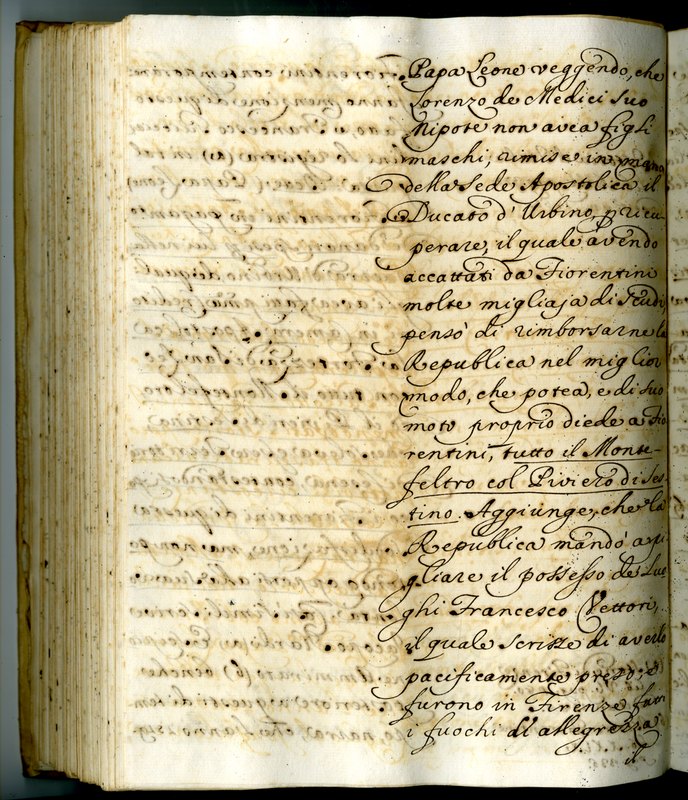 Papa Leone veggendo, che
Lorenzo de Medici suo
Nipote non avea figli
maschi, rimise in mano
della Sede Apostolica il
Ducato d'Urbino, p ricu-
perare, il quale avendo
accattati da Fiorentini
molte migliaja di Scudi,
pensò di rimborsarne la
Republica nel miglior
modo, che potea, e di suo
moto proprio diede a Fio
rentini, tutto il Monte-
feltro col Piviero di Ses-
tino. Aggiunge, che la
Republica mandò a pi
gliare il possesso de Luo
ghi Francesco Vettori,
il quale scrisse di averlo
pacificamente preso, e
furono in Firenze fatti
i fuochi di allegrezza
il